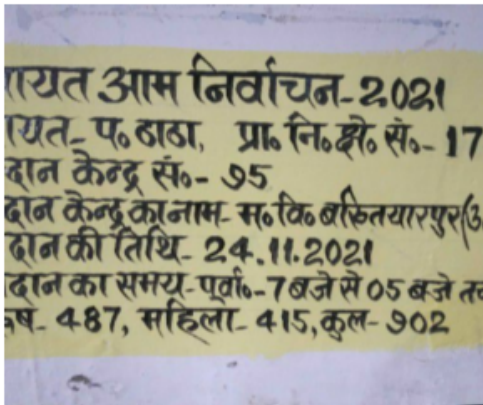 ायत आम निर्वाचन-2021
ायत- प० ठाठा, प्रा० नि० क्षे० सं०- 17
दान केन्द्र सं०- 95
दान केन्द्र का नाम- म० वि० बख्तियारपुर(उ
दान की तिथि- 24.11.2021
दान का समय- पूर्वा०-7 बजे से 05 बजे तक
रुष- 487, महिला- 415, कुल- 902